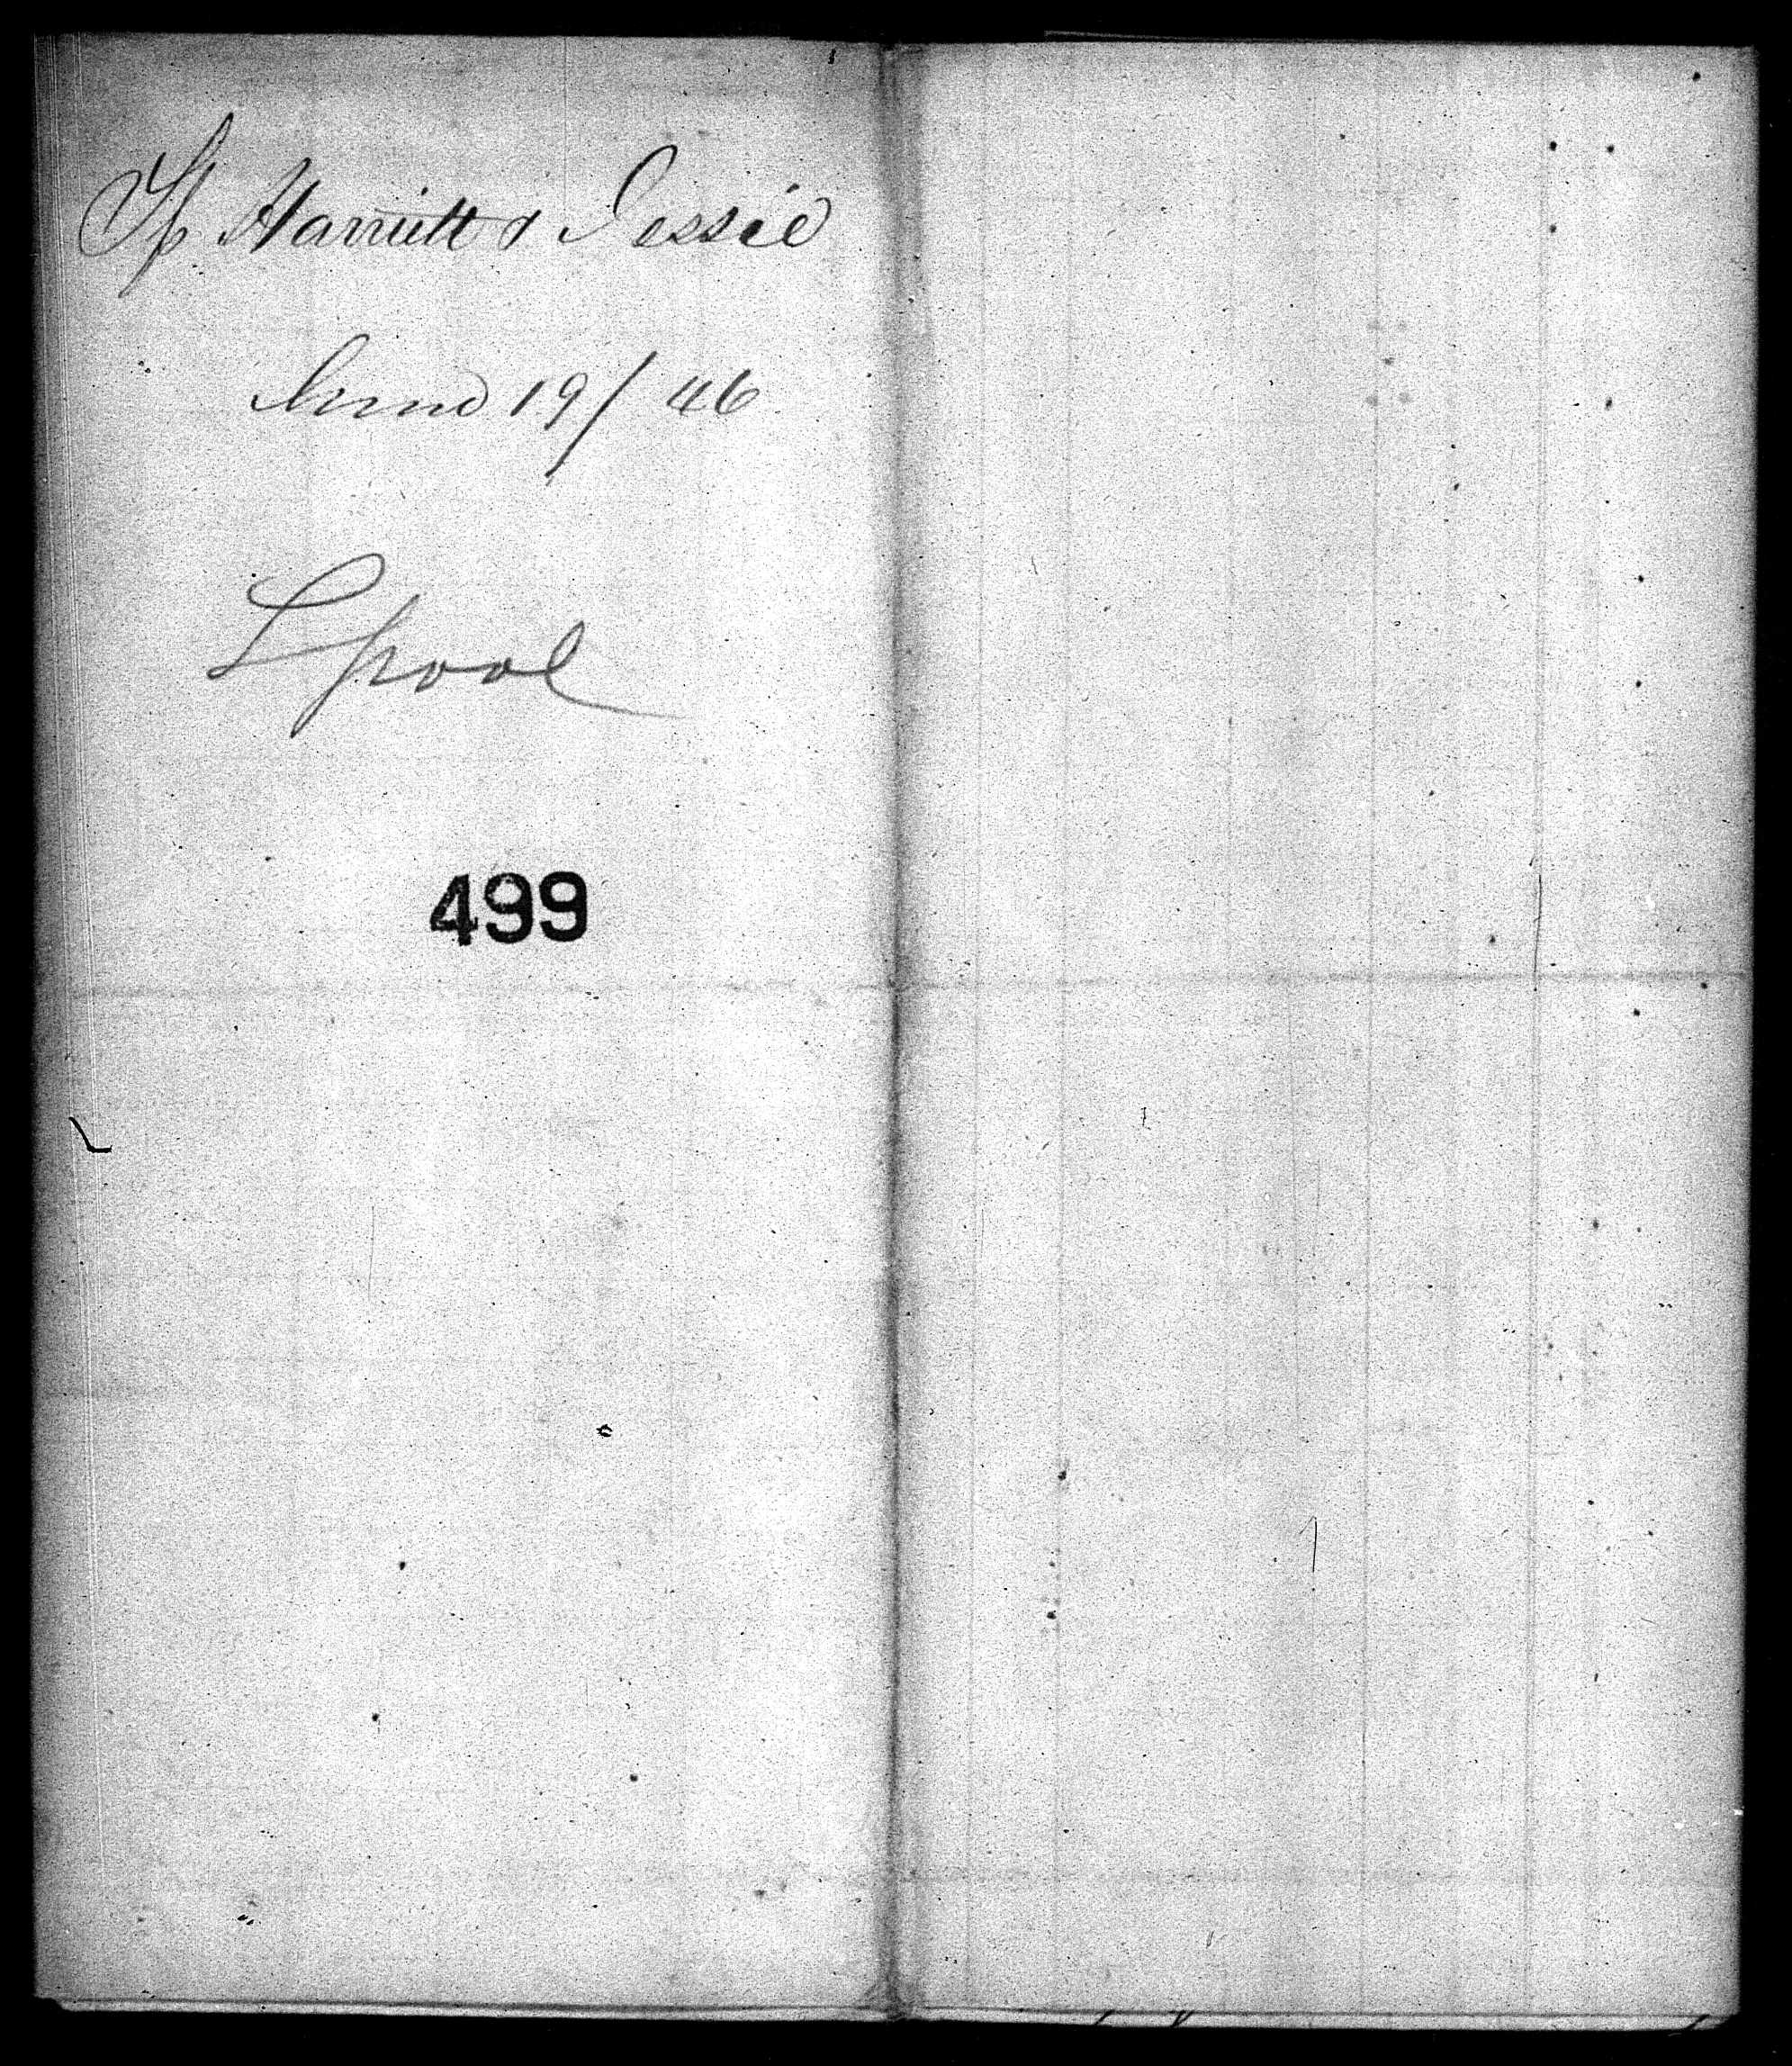 Sp Harriett & Jessie
June 19/46
Lpool
499